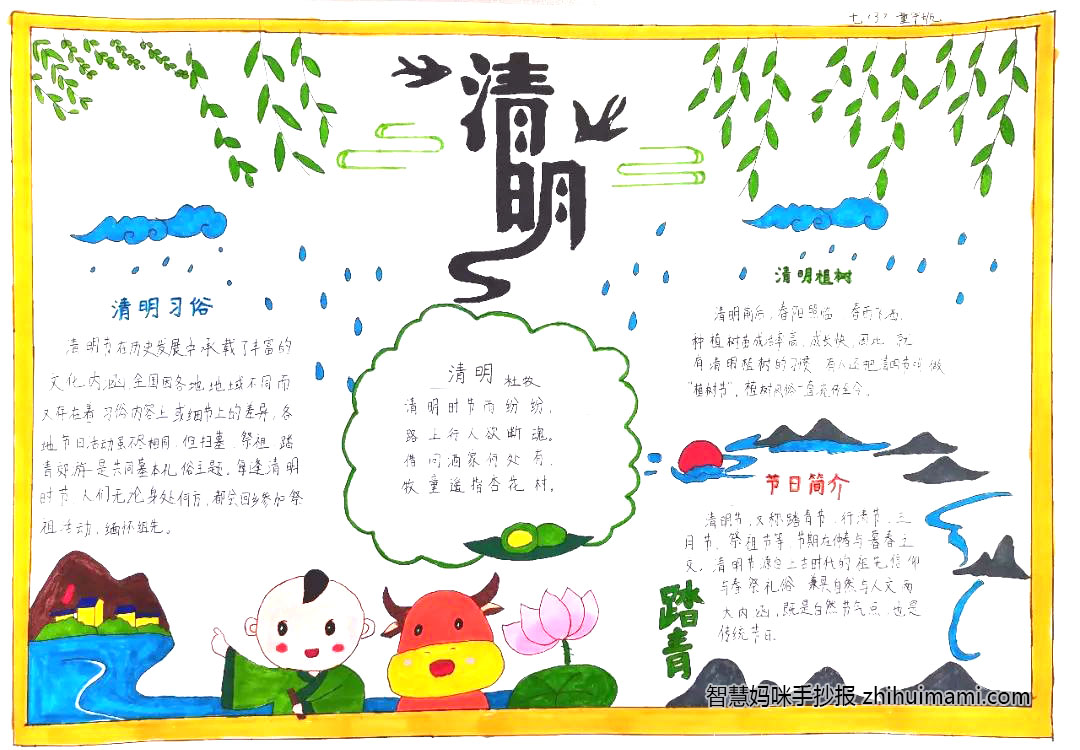 清明
清明习俗
清明节在历史发展中承载了丰富的
文化内涵,全国因各地地域不同而
又存在着习俗内容上或细节上的差异,各
地节日活动虽不尽相同,但扫墓、祭祖、踏
青郊游是共同基本礼俗主题。每逢清明
时节,人们无论身处何方,都会回乡参加祭
祖活动,缅怀祖先。
清明 杜牧
清明时节雨纷纷,
路上行人欲断魂。
借问酒家何处有,
牧童遥指杏花村。
清明植树
清明前后,春阳照临,春雨飞洒,
种植树苗成活率高,成长快,因此,就
有清明植树的习惯,有人还把清明节叫做
"植树节"。植树风俗一直流传至今。
节日简介
清明节,又称踏青节、行清节、三
月节、祭祖节等,节期在仲春与暮春之
交。清明节源自上古时代的祖先信仰
与春祭礼俗,兼具自然与人文两
大内涵,既是自然节气点,也是
传统节日。
踏青
智慧妈咪手抄报 zhihuimami.com